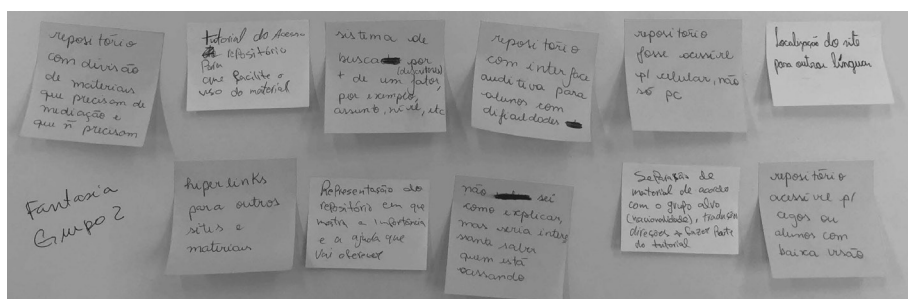 repositório
com divisão
de materiais
que precisam de
mediação e
que ñ precisam
tutorial do Acesso
repositório
Para
que facilite o
uso do material
sistema de
busca por
+ de um fator,
por exemplo,
assunto, nível, etc
repositório
com interface
auditiva para
alunos com
dificuldades
repositório
fosse acessível
p/ celular, não
só pc
Localização do site
para outras línguas
Fantasia
Grupo 2
hiperlinks
para outros
sites e
materiais
Representação do
repositório em que
mostra a importância
e a ajuda que
vai oferecer
não sei
como explicar,
mas seria interes
sante saber
quem está
acessando
Separação de
material de acordo
com o grupo alvo
(nacionalidade),
direções + fazer parte
do tutorial
repositório
acessível p/
cegos ou
alunos com
baixa visão